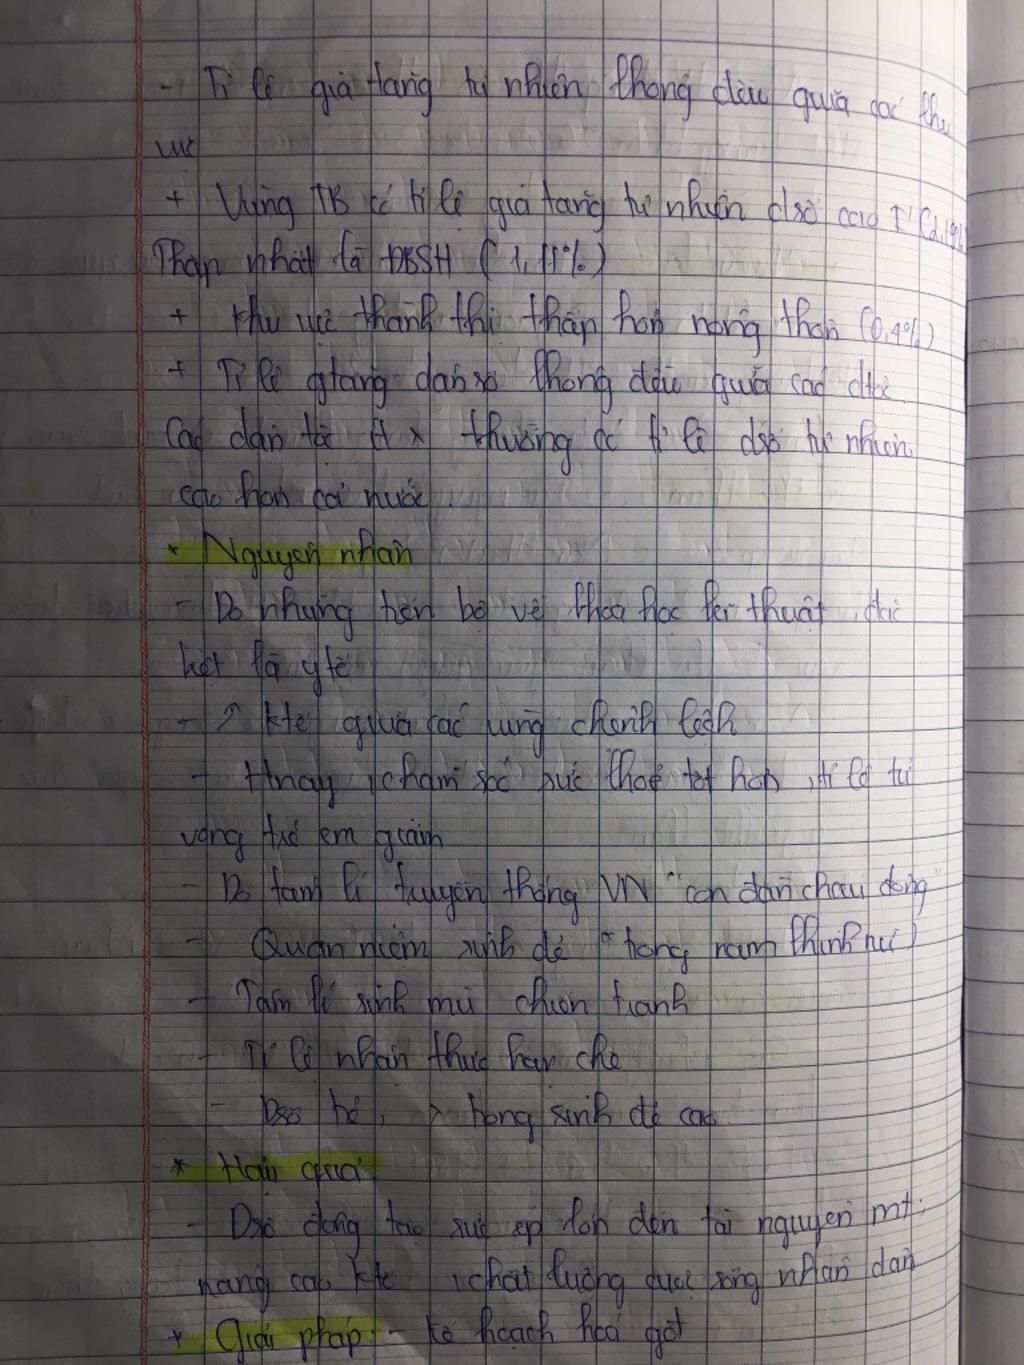 - Tỉ lệ gia tăng tự nhiên không đều giữa các khu
vực
+ Vùng TB có tỉ lệ gia tăng tự nhiên dsố cao I
Thấp nhất là ĐBSH (1,11%)
+ Khu vực thành thị thấp hơn nông thôn (0,4%)
+ Tỉ lệ gtăng dân số không đều giữa các dtộc.
Các dân tộc ít x thường có tỉ lệ dsố tự nhiên
cao hơn cả nước.
* Nguyên nhân
- Do những tiến bộ về khoa học kĩ thuật, đặc
biệt là y tế
- ↗ ktế giữa các vùng chênh lệch
- Hnay, chăm sóc sức khoẻ tốt hơn, tỉ lệ tử
vong trẻ em giảm
- Do tâm lí truyền thống VN "con đàn cháu đống"
- Quan niệm sinh đẻ "trọng nam khinh nữ)
- Tâm lí sinh bù chiến tranh
- Tỉ lệ nhận thức hạn chế
- Dsố trẻ, > trong sinh đẻ cao
* Hậu quả
- Dsố đông tạo sức ép lớn đến tài nguyên mt,
nâng cao ktế, chất lượng cuộc sống nhân dân
* Giải pháp: - Kế hoạch hoá gđ